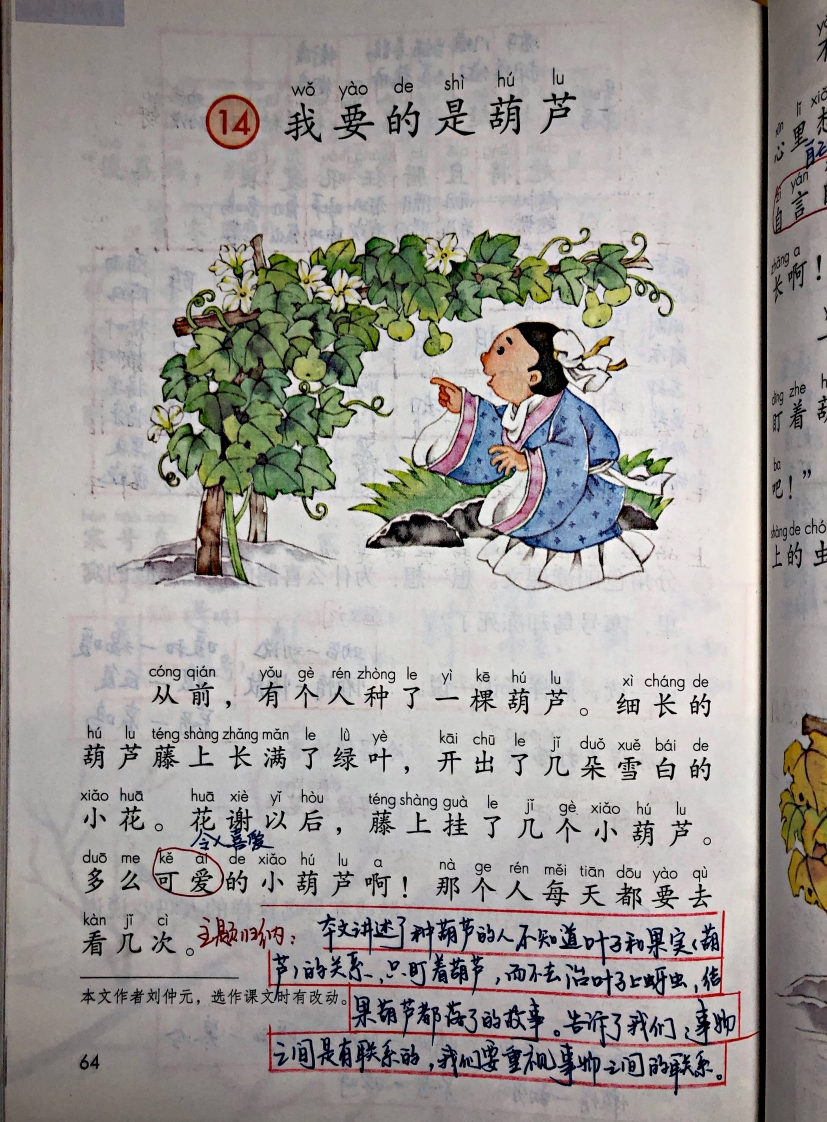 wǒ yào de shì hú lu
14 我要的是葫芦
cóng qián yǒu gè rén zhòng le yì kē hú lu xì cháng de
从前，有个人种了一棵葫芦。细长的
hú lu téng shàng zhǎng mǎn le lǜ yè kāi chū le jǐ duǒ xuě bái de
葫芦藤上长满了绿叶，开出了几朵雪白的
xiǎo huā huā xiè yǐ hòu téng shàng guà le jǐ gè xiǎo hú lu
小花。花谢以后，藤上挂了几个小葫芦。
令人喜爱
duō me kě ài de xiǎo hú lu a nà ge rén měi tiān dōu yào qù
多么可爱的小葫芦啊！那个人每天都要去
kàn jǐ cì
看几次。
主题归纳：本文讲述了种葫芦的人不知道叶子和果实（葫
芦）的关系，只盯着葫芦，而不去治叶子上蚜虫，结
果葫芦都落了的故事。告诉了我们：事物
之间是有联系的，我们要重视事物之间的联系。
本文作者刘仲元，选作课文时有改动。
64
xīn lǐ xiǎ
心里想
zì yán
自言
zhǎng a
长啊！
dīng zhe h
盯着葫
ba
吧！”
shàng de chó
上的虫